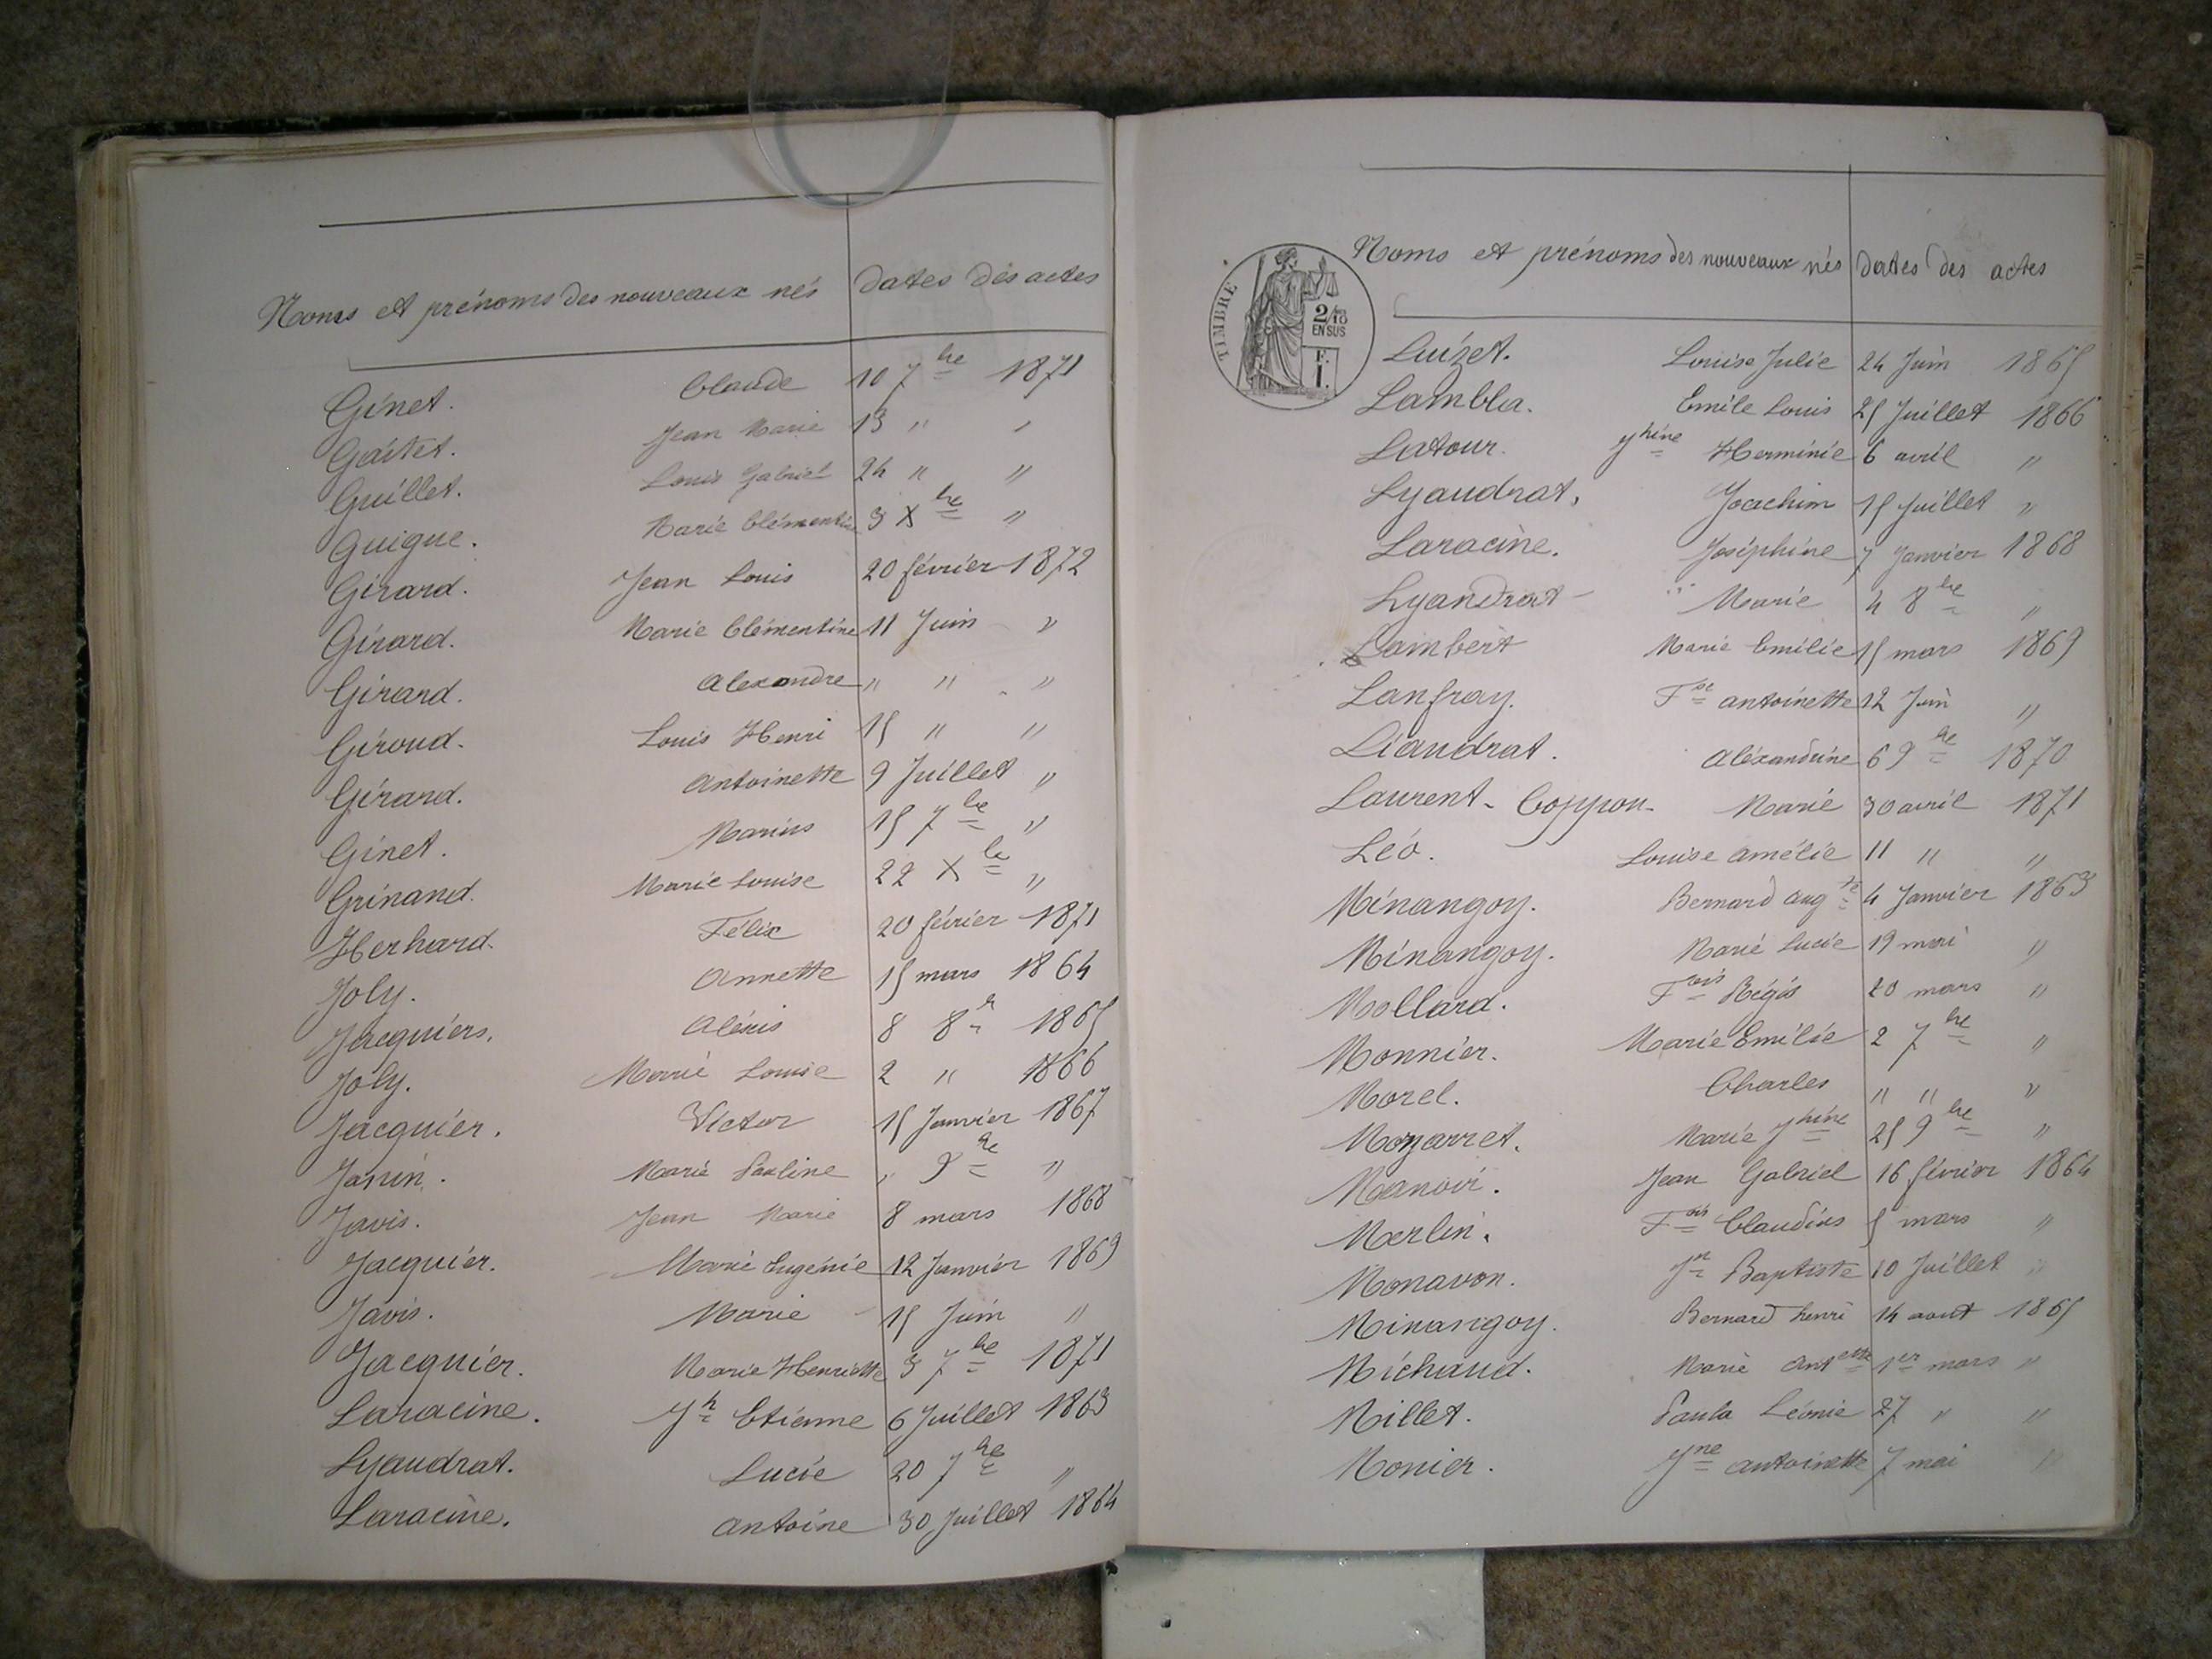 Noms et prénoms des nouveaux nés dates des actes
Ginet. Claude 10 7bre 1871
Gaitet. Jean Marie 13 " "
Guillet. Louis Gabriel 24 " "
Guigue. Marie Clémentine 3 Xbre "
Girard. Jean Louis 20 février 1872
Girard. Marie Clémentine 11 Juin "
Girard. Alexandre " " "
Giroud. Louis Henri 15 " "
Girard. Antoinette 9 Juillet "
Ginet. Marius 15 7bre "
Grinand. Marie Louise 22 Xbre "
Herhard. Félix 20 février 1871
Joly. Annette 15 mars 1864
Jacquiers. Alexis 8 8bre 1865
Joly. Marie Louise 2 " 1866
Jacquier. Victor 15 Janvier 1867
Janin. Marie Pauline " 9bre "
Javis. Jean Marie 8 mars 1868
Jacquier. Marie Eugénie 12 Janvier 1869
Javis. Marie 15 Juin "
Jacquier. Marie Henriette 3 7bre 1871
Laracine. Jh Etienne 6 Juillet 1863
Lyaudrat. Lucie 20 7bre "
Laracine. Antoine 30 Juillet 1864
TIMBRE
2/10
EN SUS
F.
1.
Noms et prénoms des nouveaux nés dates des actes
Luizet. Louise Julie 24 Juin 1865
Lambla. Emile Louis 25 Juillet 1866
Latour. Jhine Herminie 6 avril "
Lyaudrat. Joachim 15 Juillet "
Laracine. Joséphine 7 Janvier 1868
Lyaudrat Marie 4 8bre "
Lambert Marie Emilie 15 mars 1869
Lanfray. Fse antoinette 12 Juin "
Liaudrat. Aléxandrine 6 9bre 1870
Laurent-Coppon Marie 30 avril 1871
Léo. Louise Amélie 11 " "
Minangoy. Bernard Augte 4 Janvier 1863
Minangoy. Marie Lucie 19 mai "
Mollard. Fois Régis 20 mars "
Monnier. Marie Emilie 2 7bre "
Morel. Charles " " "
Mozarret. Marie Jhine 25 9bre "
Manovi. Jean Gabriel 16 février 1864
Merlin. Fois Claudius 5 mars "
Monavon. Jn Baptiste 10 Juillet "
Minangoy. Bernard henri 14 aout 1865
Michaud. Marie Antette 1er mars "
Millet. Paula Léonie 27 " "
Monier. Jne antoinette 7 mai "